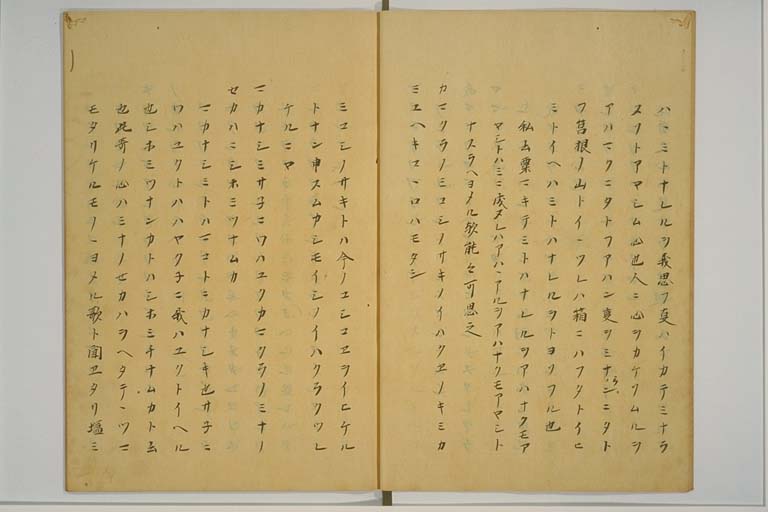 ハヽミトナレルヲ義思フ夏ハイカテミナラ
ヌソトアマシム心也人ニ心ヲカケソムルヲ
アハマクニタトフアハン夏ヲミナシニタト
フ筥根ノ山トイヽツレハ箱ニハフタトイヒ
ミトイヘハミトハナレルヲトヨソフル也
私云粟マキテミトハナレルヲアハナクモア
マシトハミニ成ヌレハアハヽアルヲアハナクモアマシト
ナスラヘヨメル歟能々可思之
カマクラノミコシノサキノイハクエノキミカ
ミユヘキコヽロハモタシ
ミコシノサキトハ今ノコシコエヲイヒケル
トナン申スムカシモイシノイハクラツツレ
ケルニヤ
マカナシミサ子ニワハユクカマクラノミナノ
セカハニシホミツナムカ
マカナシミトハマコトニカナシキ也サ子ニ
ワハユクトハハヤク子ニ我ハユクトイヘル
也シホミツナンカトハシホミチナムカト云
也此哥ノ心ハミナノセカハヲヘタテヽツマ
モタリケルモノヽヨメル歌ト聞エタリ塩ミ